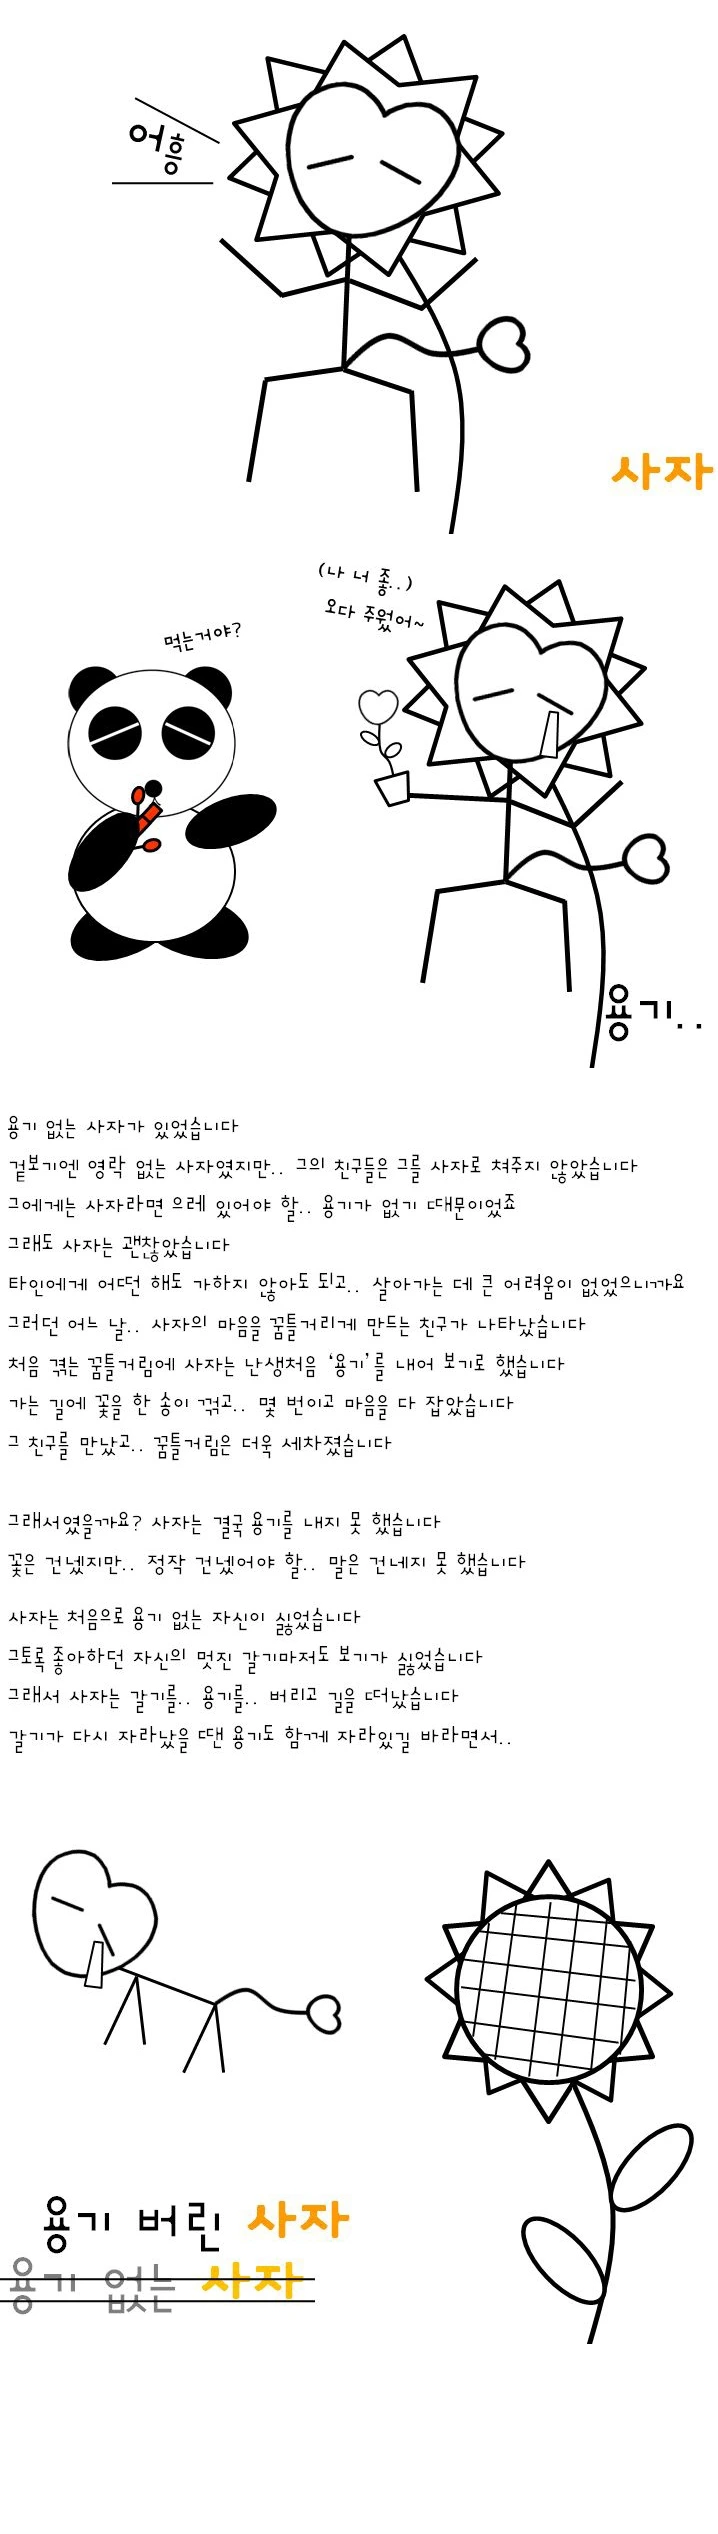 어흥
사자
(나 너 좋..)
오다 주웠어~
먹는거야?
용기..
용기 없는 사자가 있었습니다
겉보기엔 영락 없는 사자였지만.. 그의 친구들은 그를 사자로 쳐주지 않았습니다
그에게는 사자라면 으레 있어야 할.. 용기가 없기 때문이었죠
그래도 사자는 괜찮았습니다
타인에게 어떤 해도 가하지 않아도 되고.. 살아가는 데 큰 어려움이 없었으니까요
그러던 어느 날.. 사자의 마음을 꿈틀거리게 만드는 친구가 나타났습니다
처음 겪는 꿈틀거림에 사자는 난생처음 ‘용기’를 내어 보기로 했습니다
가는 길에 꽃을 한 송이 꺾고.. 몇 번이고 마음을 다 잡았습니다
그 친구를 만났고.. 꿈틀거림은 더욱 세차졌습니다
그래서였을까요? 사자는 결국 용기를 내지 못 했습니다
꽃은 건넸지만.. 정작 건넸어야 할.. 말은 건네지 못 했습니다
사자는 처음으로 용기 없는 자신이 싫었습니다
그토록 좋아하던 자신의 멋진 갈기마저도 보기가 싫었습니다
그래서 사자는 갈기를.. 용기를.. 버리고 길을 떠났습니다
갈기가 다시 자라났을 땐 용기도 함께 자라있길 바라면서..
용기 버린 사자
용기 없는 사자